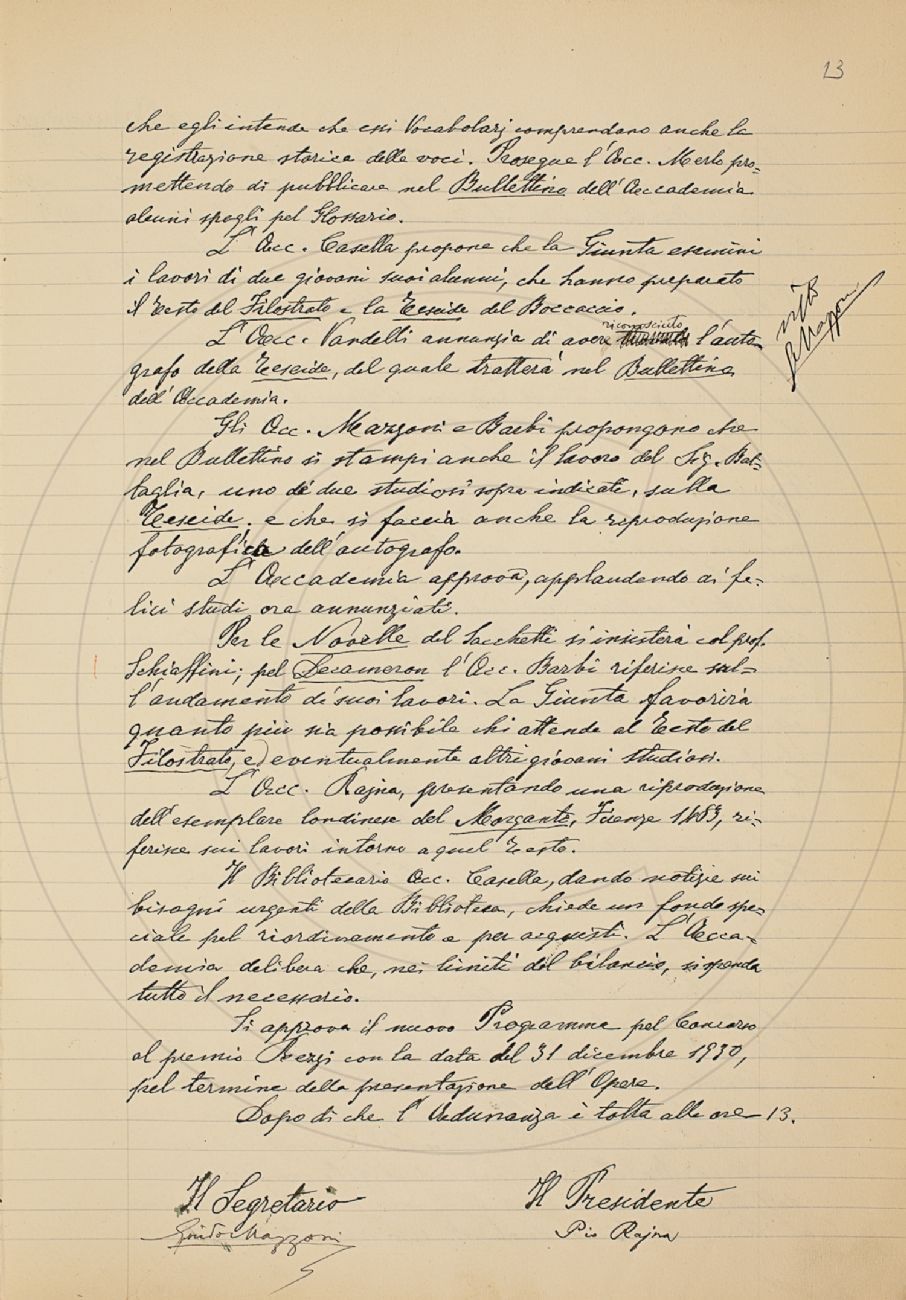 13
che egli intende che essi Vocabolarj comprendano anche la
registrazione storica delle voci. Prosegue l'Acc. Merlo pro=
mettendo di pubblicare nel Bullettino dell'Accademia
alcuni spogli pel Glossario.
L'Acc. Casella propone che la Giunta esamini
i lavori di due giovani suoi alunni, che hanno preparato
il Testo del Filostrato e la Teseide del Boccaccio.
riconosciuto
L'Acc. Vandelli annunzia di avere l'auto=
grafo della Teseide, del quale tratterà nel Bullettino
dell'Accademia.
visto
G Mazzoni
Gli Acc. Mazzoni e Barbi propongono che
nel Bullettino si stampi anche il lavoro del Sig. Bat=
taglia, uno de' due studiosi sopra indicati, sulla
Teseide, e che si faccia anche la riproduzione
fotografica dell'autografo.
L'Accademia approva, applaudendo ai fe=
lici studi ora annunziati.
Per le Novelle del Sacchetti si insisterà col prof.
Schiaffini; pel Decameron l'Acc. Barbi riferisce sul=
l'andamento di suoi lavori. La Giunta favorirà
quanto più sia possibile chi attende al Testo del
Filostrato, ed eventualmente altri giovani studiosi.
L'Acc. Rajna, presentando una riproduzione
dell'esemplare londinese del Morgante, Firenze 1483, ri=
ferisce sui lavori intorno a quel Testo.
Il Bibliotecario Acc. Casella, dando notizie sui
bisogni urgenti della Biblioteca, chiede un fondo spe=
ciale pel riordinamento e per acquisti. L'Acca=
demia delibera che, nei limiti del bilancio, si spenda
tutto il necessario.
Si approva il nuovo Programma pel Concorso
al premio Rezzi con la data del 31 dicembre 1930,
pel termine della presentazione dell'Opere.
Dopo di che l'Adunanza è tolta alle ore 13.
Il Segretario
Il Presidente
Guido Mazzoni
Pio Rajna